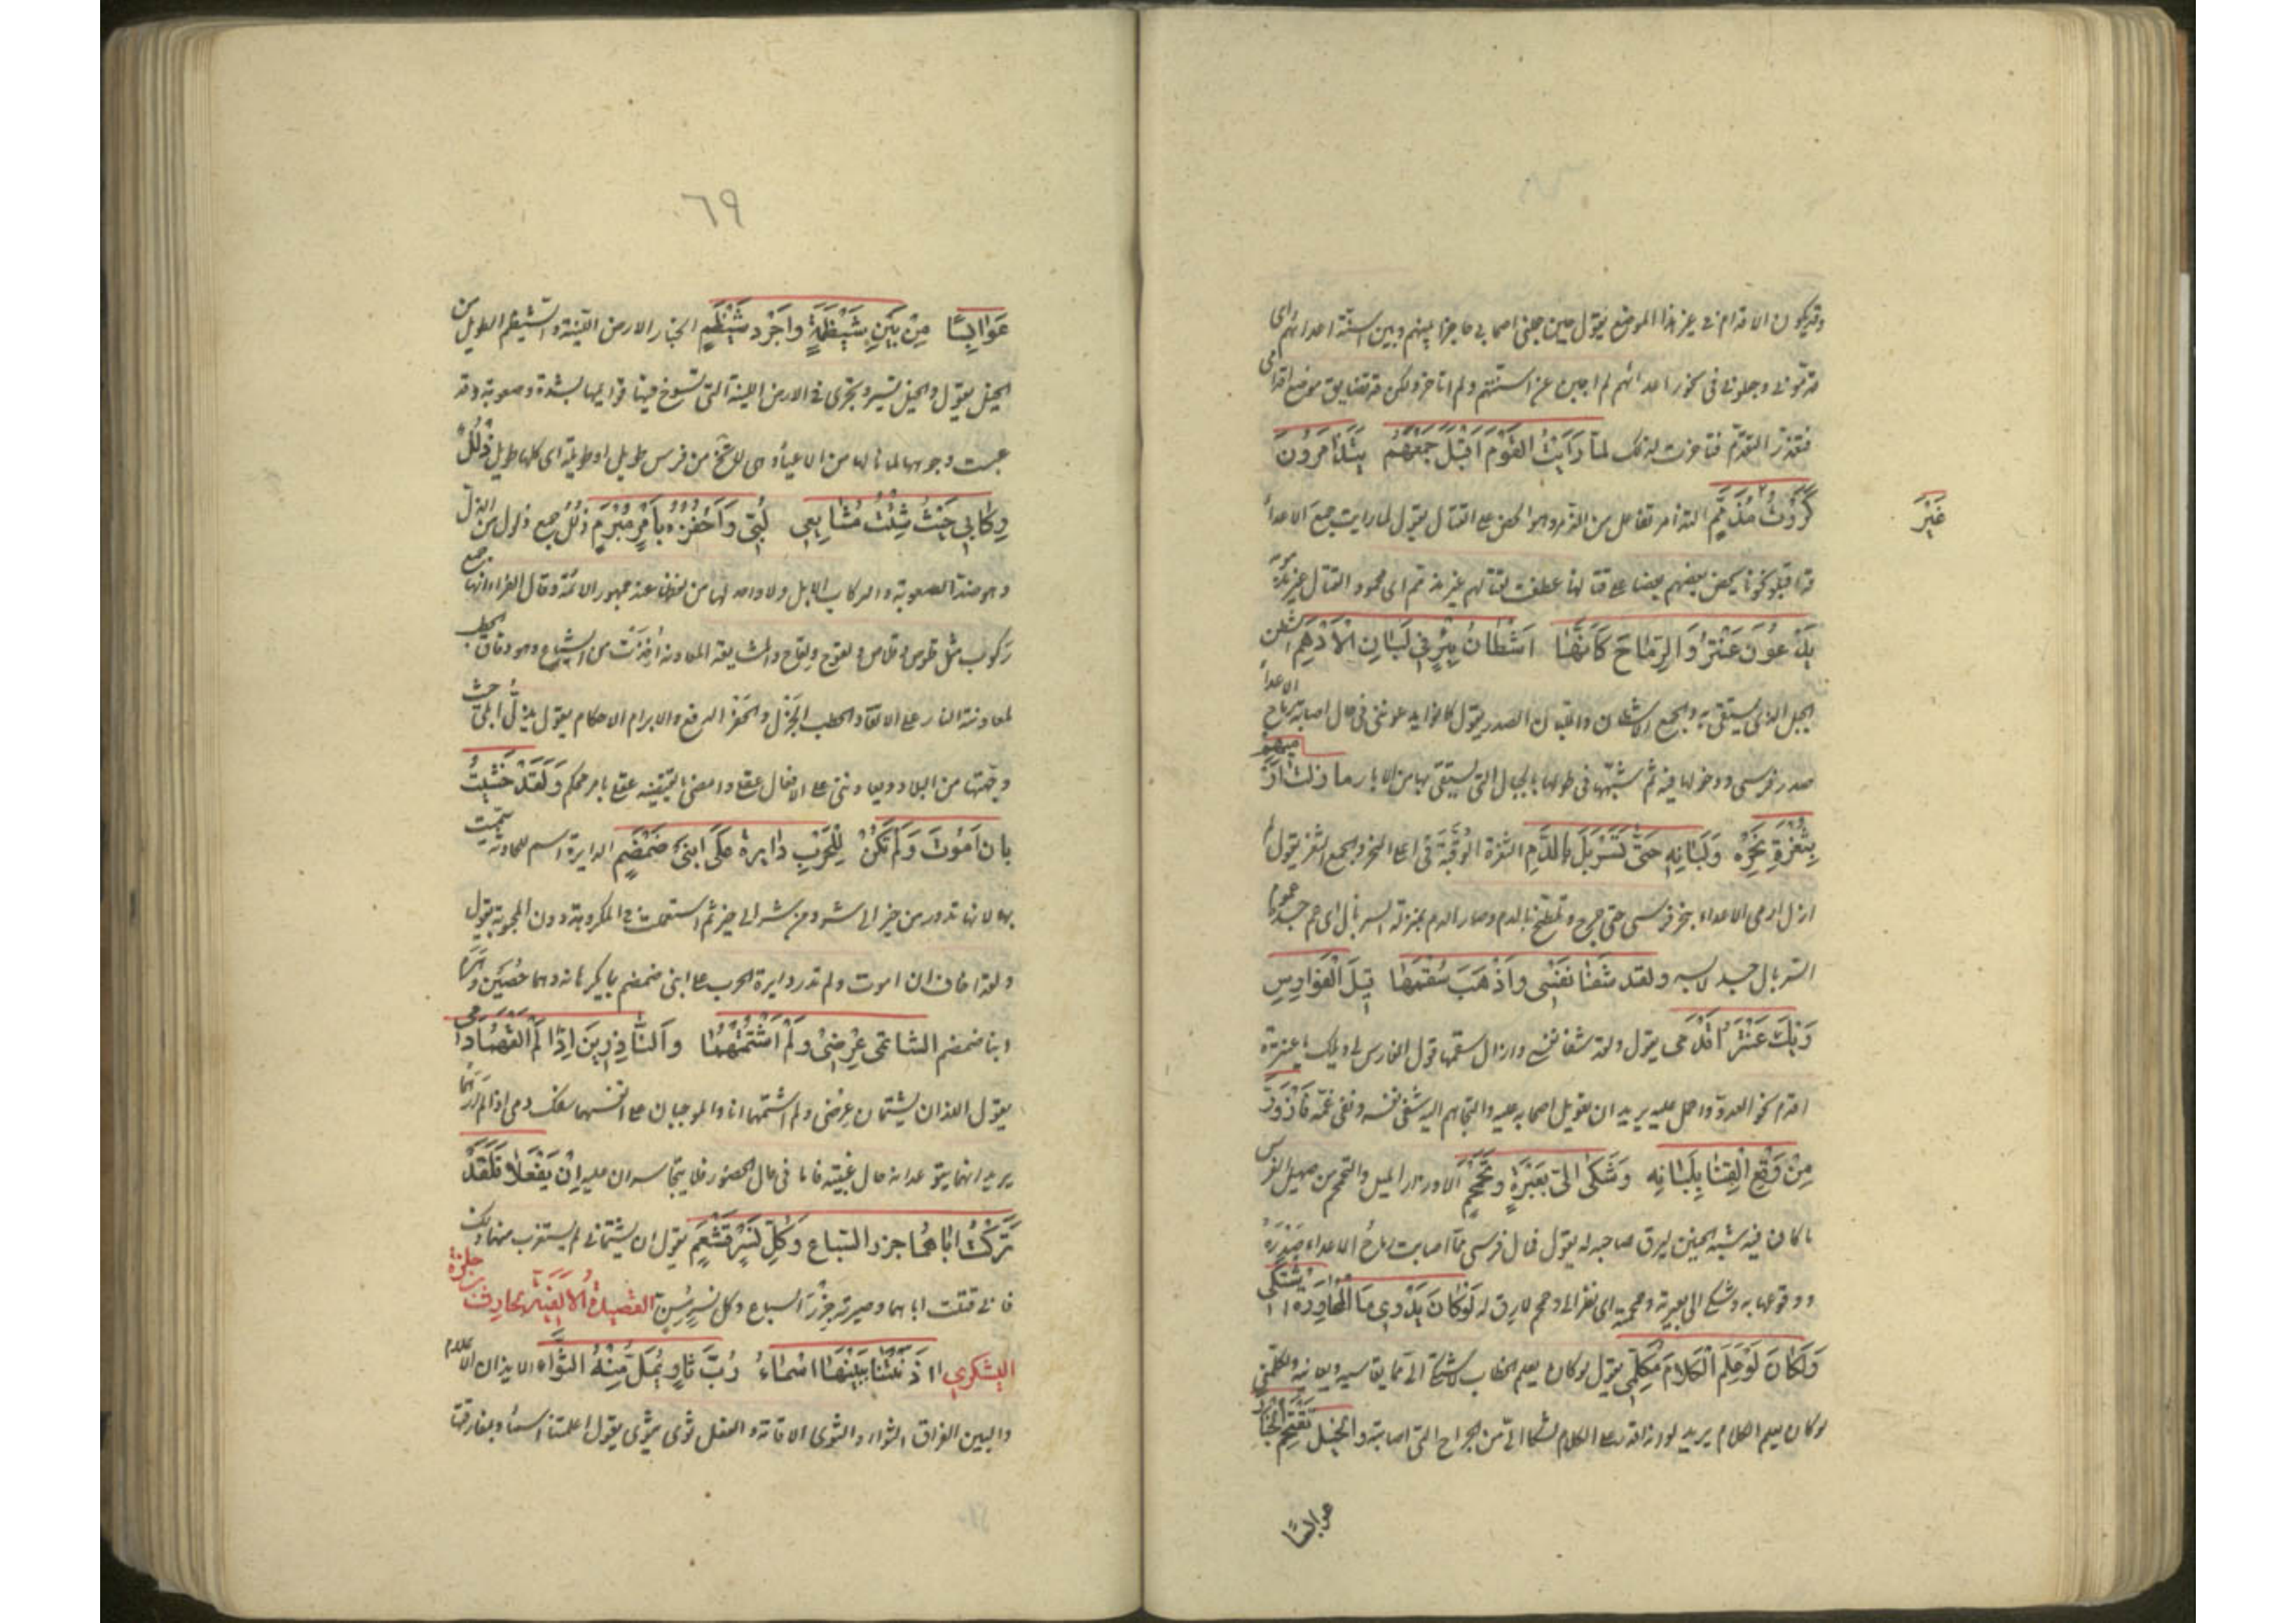 وقد يكون الاقدام في غير هذا الموضع يقول حين جعلني اصحابي حاجزا بينهم وبين اسنة اعدائهم اى
قدموني وجعلوني في نحور اعدائهم لم اجبن عن اسنتهم ولم اتاخر ولكن قد تضايق موضع اقدامى
فتعذر التقدم فتاخرت لذلك لَمَّا رَاَيْتُ القَوْمَ اَقْبَلَ جَمْعُهُمْ يَتَذَامَرُونَ
كَرَرْتُ مُذَمَّمِ التذامر تفاعل من الذمر وهو الحض على القتال يقول لما رايت جمع الاعداء
غَيْرَ
قد اقبلوا نحونا يحض بعضهم بعضا على قتالنا عطفت لقتالهم غير مذمم اى محمود القتال غير مذمومه
يَدْعُونَ عَنْتَرَ وَالرِّمَاحُ كَاَنَّهَا اَشْطَانُ بِئْرٍ فِي لَبَانِ الْاَدْهَمِ الشطن
الحبل الذى يستقى به والجمع الاشطان واللبان الصدر يقول كانوا يدعونني في حال اصابة رماح الاعداء
صدر فرسى ودخولها فيه ثم شبهها في طولها بالحبال التى يستقى بها من الابار ما زلت اَرْمِيهِمْ
بِثُغْرَةِ نَحْرِهِ وَلَبَانِهِ حَتَّى تَسَرْبَلَ بِالدَّمِ الثغرة الوقبة فى اعلا النحر والجمع الثغر يقول لم
ازل ارمى الاعداء بنحر فرسى حتى جرح وتلطخ بالدم وصار الدم بمنزلة السربال اى عم جسده عموم
السربال جسد لابسه ولقد شَفَا نَفْسِى وَاَذْهَبَ سُقْمَهَا قِيلَ الْفَوَارِسِ
وَيْكَ عَنْتَرَ اَقْدِمِى يقول ولقد شفا نفسى وازال سقمها قول الفوارس لى ويلك يا عنترة
اقدم نحو العدو واحمل عليه يريد ان تعويل اصحابه عليه والتجاهم اليه شفى نفسه ونفى غمه فَازْوَرَّ
مِنْ وَقْعِ الْقَنَا بِلَبَانِهِ وَشَكَى اِلَىَّ بِعَبْرَةٍ وَتَحَمْحُمِ الازورار الميل والتحمحم من صهيل الفرس
ما كان فيه شبه الحنين ليرق صاحبه له يقول فمال فرسى مما اصابت رماح الاعداء صدره
ووقوعها به وشكى الى بعبرته وحمحمته اى نظر الى وحمحم لارق له لَوْ كَانَ يَدْرِي مَا الْمُحَاوَرَةُ اشْتَكَى
وَلَكَانَ لَوْ عَلِمَ الْكَلَامَ مُكَلِّمِى يقول لو كان يعلم الخطاب لاشتكى الى مما يقاسيه ويعانيه ولكلمنى
لو كان يعلم الكلام يريد لو انه قدر على الكلام لشكا الى من الجراح التى اصابته والخَيْلُ تَقْتَحِمُ الْخَبَارَ
عوابسًا
٦٩
عَوَابِسًا مِنْ بَيْنِ شَيْظَمَةٍ وَاَجْرَدَ شَيْظَمِ الخبار الارض اللينة والشيظم الطويل من
الخيل يقول والخيل تسير وتجرى فى الارض اللينة التى تسوخ فيها قوائمها بشدة وصعوبة وقد
عبست وجوهها لما نالها من الاعياء وهى لا تخلو من فرس طويل او طويلة اى كلها طويل ذُلُلٌ
رِكَابِى حَيْثُ شِئْتُ مُشَايِعِى لُبِّى وَاَحْفِزُهُ بِاَمْرٍ مُبْرَمِ ذلل جمع ذلول من الذل
وهو ضد الصعوبة والركاب الابل ولا واحد لها من لفظها عند جمهور الائمة وقال الفراء انها جمع
ركوب مثل قلوص وقلاص ولقوح ولقاح والمشايعة المعاونة اخذت من الشياع وهو دقاق الحطب
لمعاونة النار على الايقاد والحطب الجزل والحفز الدفع والابرام الاحكام يقول تذل ابلى حيث
وجهتها من البلاد ويعاوننى على الافعال عقلى وامضى ما يقتضيه عقلى بامر محكم وَلَقَدْ خَشِيتُ
بِاَنْ اَمُوتَ وَلَمْ تَكُنْ لِلْحَرْبِ دَايِرَةٌ عَلَى ابْنَىْ ضَمْضَمِ الدايرة اسم للحادثة سميت
بها لانها تدور من خير الى شر ومن شر الى خير ثم استعملت فى المكروهة دون المحبوبة يقول
ولقد اخاف ان اموت ولم تدر دايرة الحرب على ابنى ضمضم بما يكرهانه وهما حصين وهرم
ابنا ضمضم الشَّاتِمَىْ عِرْضِى وَلَمْ اَشْتِمْهُمَا وَالنَّاذِرَيْنِ اِذَا لَمْ اَلْقَهُمَا دَمِى
يقول اللذان يشتمان عرضى ولم اشتمهما انا والموجبان على انفسهما سفك دمى اذا لم ارهما
يريد انهما يتوعدانه حال غيبته فاما فى حال الحضور فلا يتجاسران عليه اِنْ يَفْعَلَا فَلَقَدْ
تَرَكْتُ اَبَاهُمَا جزر السباع وَكُلِّ نَسْرٍ قَشْعَمِ يقول ان يشتمانى لم يستغرب منهما ذلك
فانى قتلت اباهما وصيرته جزر السباع وكل نسر مسن القصيدة الالفية لحارث بن حلزة
اليشكري اٰذَنَتْنَا بِبَيْنِهَا اَسْمَاءُ رُبَّ ثَاوٍ يُمَلُّ مِنْهُ الثَّوَاءُ الايذان الاعلام
والبين الفراق الثواء والثوى الاقامة والفعل ثوى يثوى يقول اعلمتنا اسماء بمفارقتها